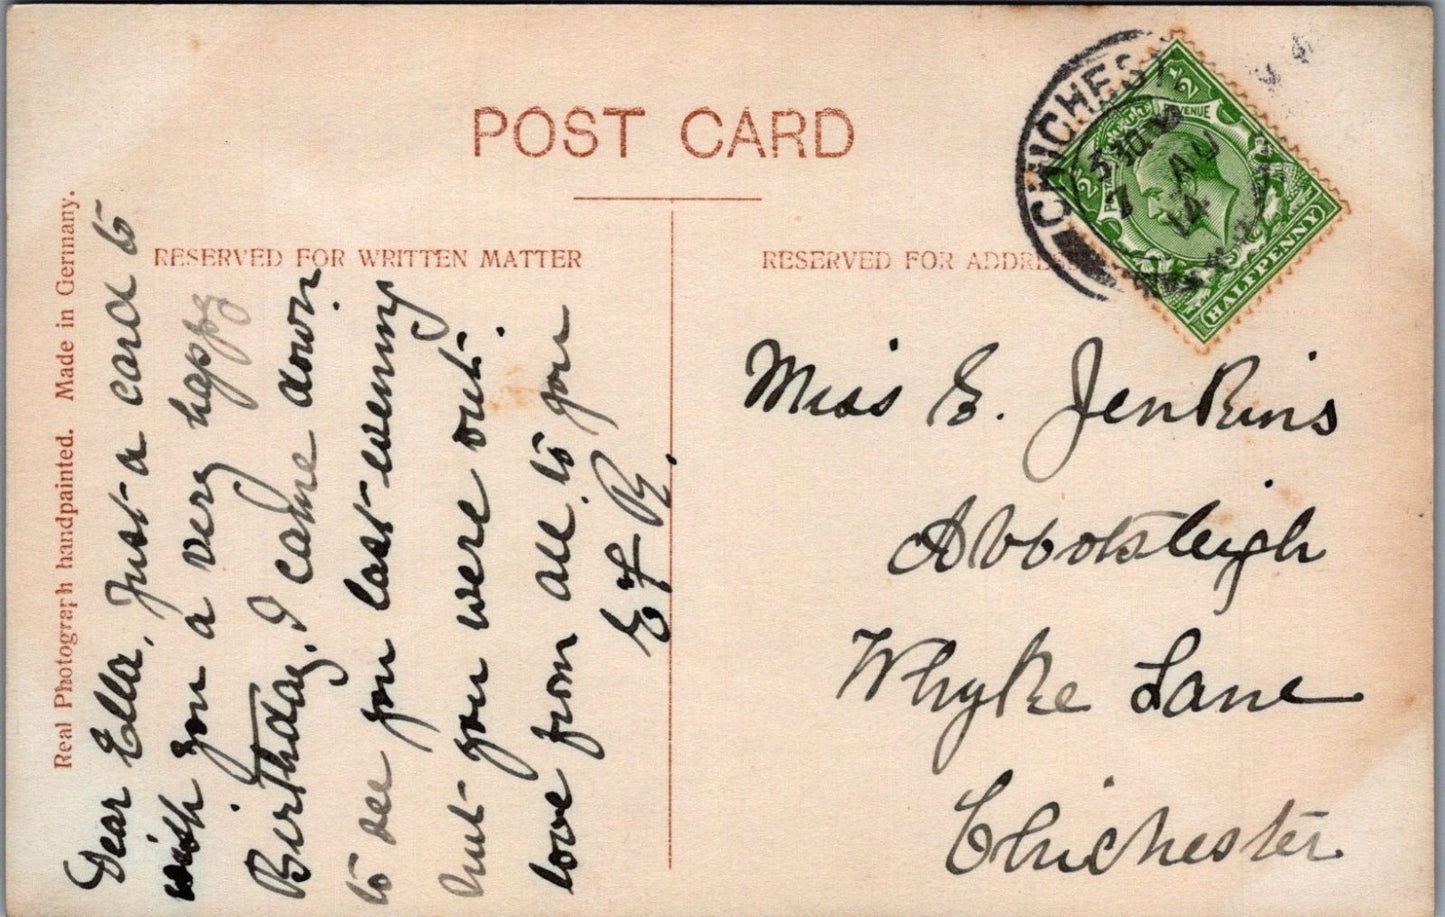 POST CARD
RESERVED FOR WRITTEN MATTER
RESERVED FOR ADDRE
Real Photograph handpainted. Made in Germany.
Dear Ella, Just a card to
wish you a very happy
Birthday. I came down
to see you last evening
but you were out.
love from all to you
E f R.
Miss E. Jenkins
Abbotsleigh
Whyke Lane
Chichester
CHICHEST
3 30 PM
7 AU
14
REVENUE
HALFPENNY